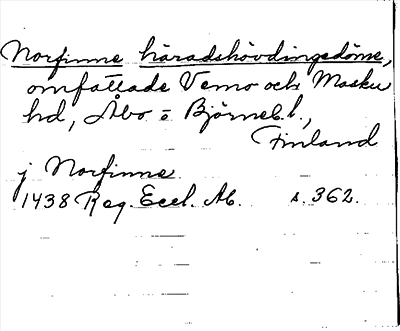 Norfinne häradshövdingedöme,
omfattade Vemo och Masku
hd, Åbo = Björneb. l.,
Finland
j Norfinne
1438 Reg. Eccl. Ab. s. 362.